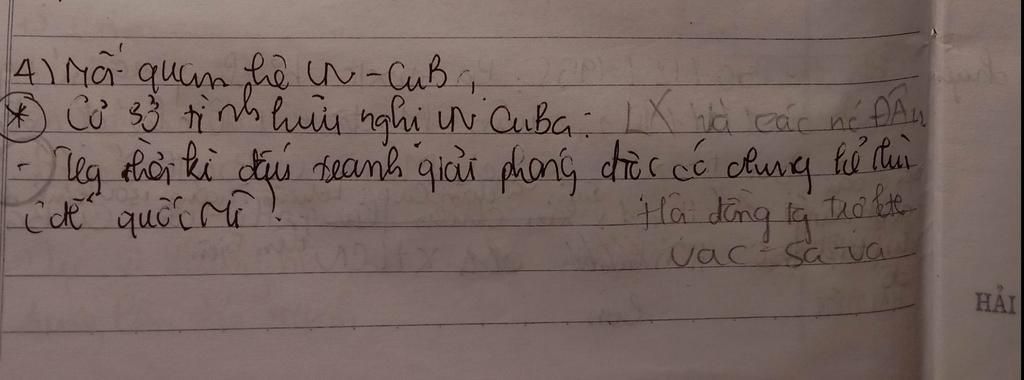 4) Mối quan hệ VN - CuBa
* Cơ sở tình hữu nghị VN CuBa: LX và các nc ĐÂu
- Trg thời kì đấu tranh giải phóng dtộc có chung kẻ thù
là đế quốc Mĩ. Hội đồng tg trợ kte
Vac-sa-va
HẢI